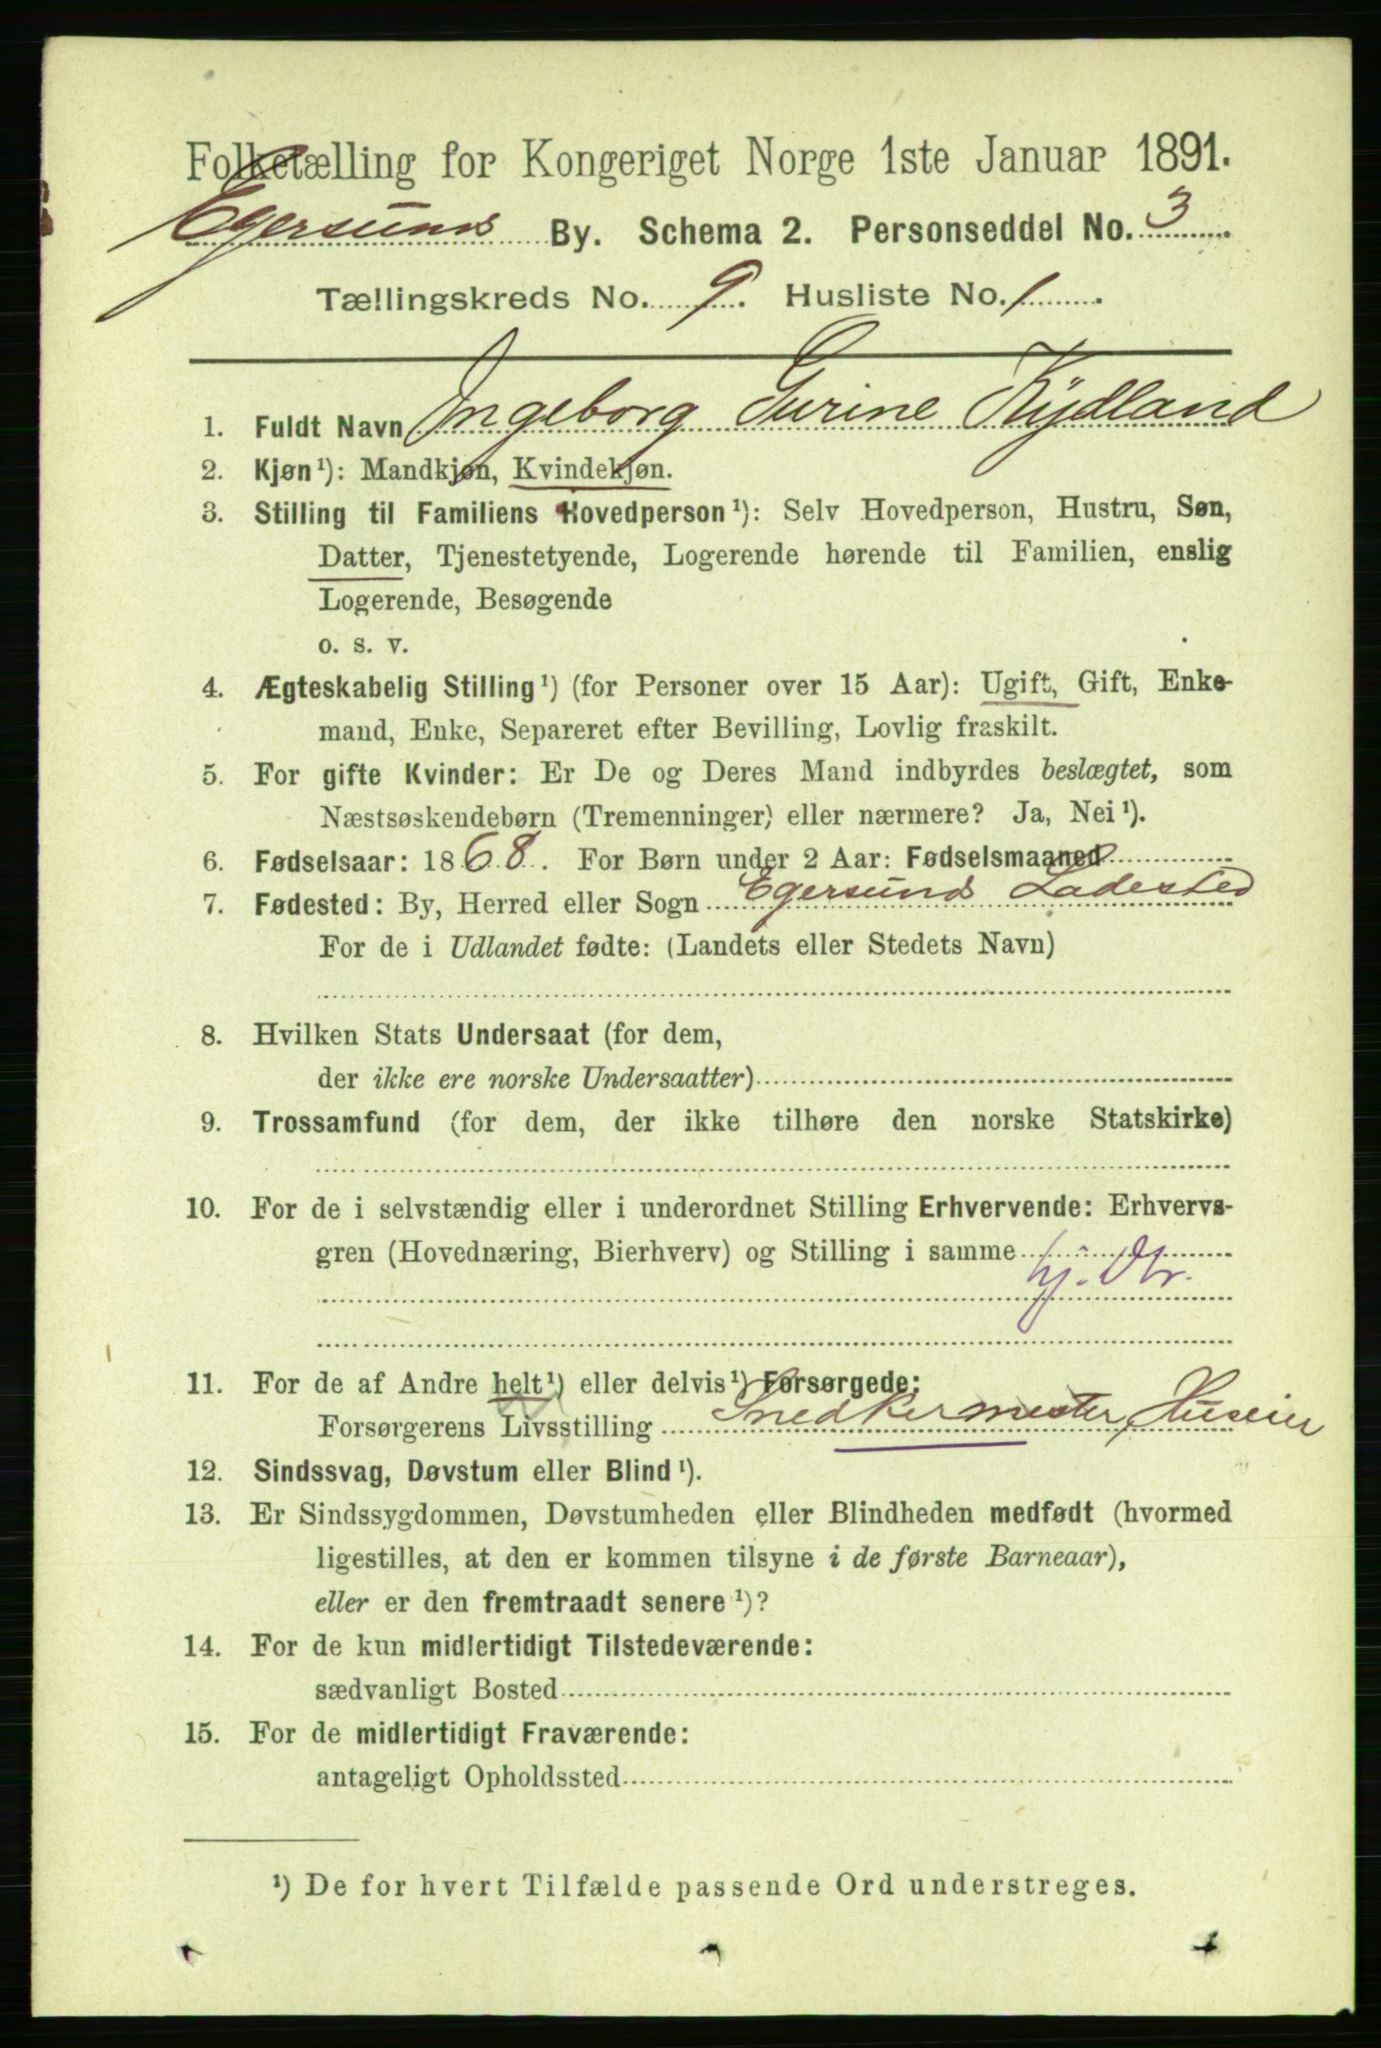 Folketælling for Kongeriget Norge 1ste Januar 1891.
Egersunds By. Schema 2. Personseddel No. 3
Tællingskreds No. 9. Husliste No. 1.
1. Fuldt Navn Ingeborg Gurine Rydland
2. Kjøn¹): Mandkjøn, Kvindekjøn.
3. Stilling til Familiens Hovedperson¹): Selv Hovedperson, Hustru, Søn,
Datter, Tjenestetyende, Logerende hørende til Familien, enslig
Logerende, Besøgende
o. s. v.
4. Ægteskabelig Stilling¹) (for Personer over 15 Aar): Ugift, Gift, Enke-
mand, Enke, Separeret efter Bevilling, Lovlig fraskilt.
5. For gifte Kvinder: Er De og Deres Mand indbyrdes beslægtet, som
Næstsøskendebørn (Tremenninger) eller nærmere? Ja, Nei¹).
6. Fødselsaar: 1868. For Børn under 2 Aar: Fødselsmaaned
7. Fødested: By, Herred eller Sogn Egersunds Ladested
For de i Udlandet fødte: (Landets eller Stedets Navn)
8. Hvilken Stats Undersaat (for dem,
der ikke ere norske Undersaatter)
9. Trossamfund (for dem, der ikke tilhøre den norske Statskirke)
10. For de i selvstændig eller i underordnet Stilling Erhvervende: Erhvervs-
gren (Hovednæring, Bierhverv) og Stilling i samme
hj. Dtr.
11. For de af Andre helt¹) eller delvis¹) Forsørgede:
Forsørgerens Livsstilling Snedkermester, Huseier
12. Sindssvag, Døvstum eller Blind¹).
13. Er Sindssygdommen, Døvstumheden eller Blindheden medfødt (hvormed
ligestilles, at den er kommen tilsyne i de første Barneaar),
eller er den fremtraadt senere¹)?
14. For de kun midlertidigt Tilstedeværende:
sædvanligt Bosted
15. For de midlertidigt Fraværende:
antageligt Opholdssted
¹) De for hvert Tilfælde passende Ord understreges.